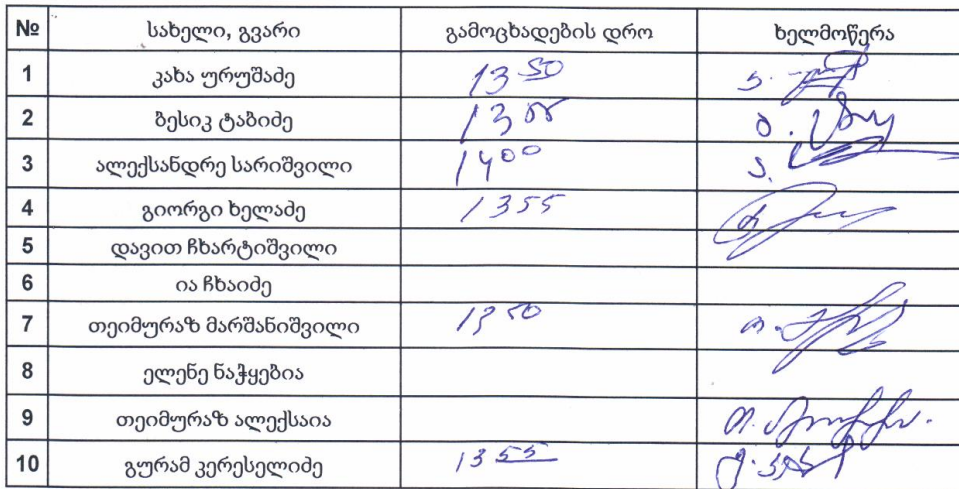 № სახელი, გვარი გამოცხადების დრო ხელმოწერა
1 კახა ურუშაძე 13 50
2 ბესიკ ტაბიძე
3 ალექსანდრე სარიშვილი 14 00
4 გიორგი ხელაძე 1355
5 დავით ჩხარტიშვილი
6 ია ჩხაიძე
7 თეიმურაზ მარშანიშვილი 13 50
8 ელენე ნაჭყებია
9 თეიმურაზ ალექსაია
10 გურამ კერესელიძე 13 55